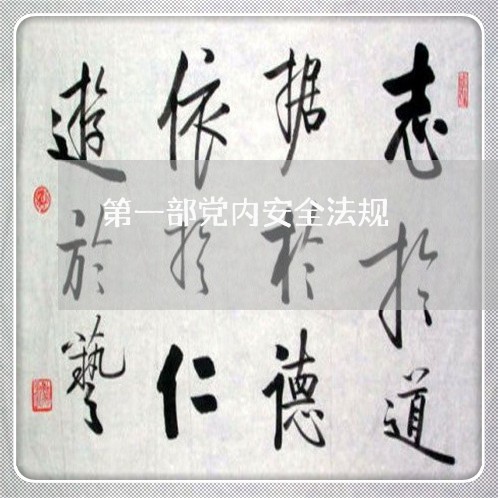 志於道
据於德
依於仁
遊於藝
第一部党内安全法规